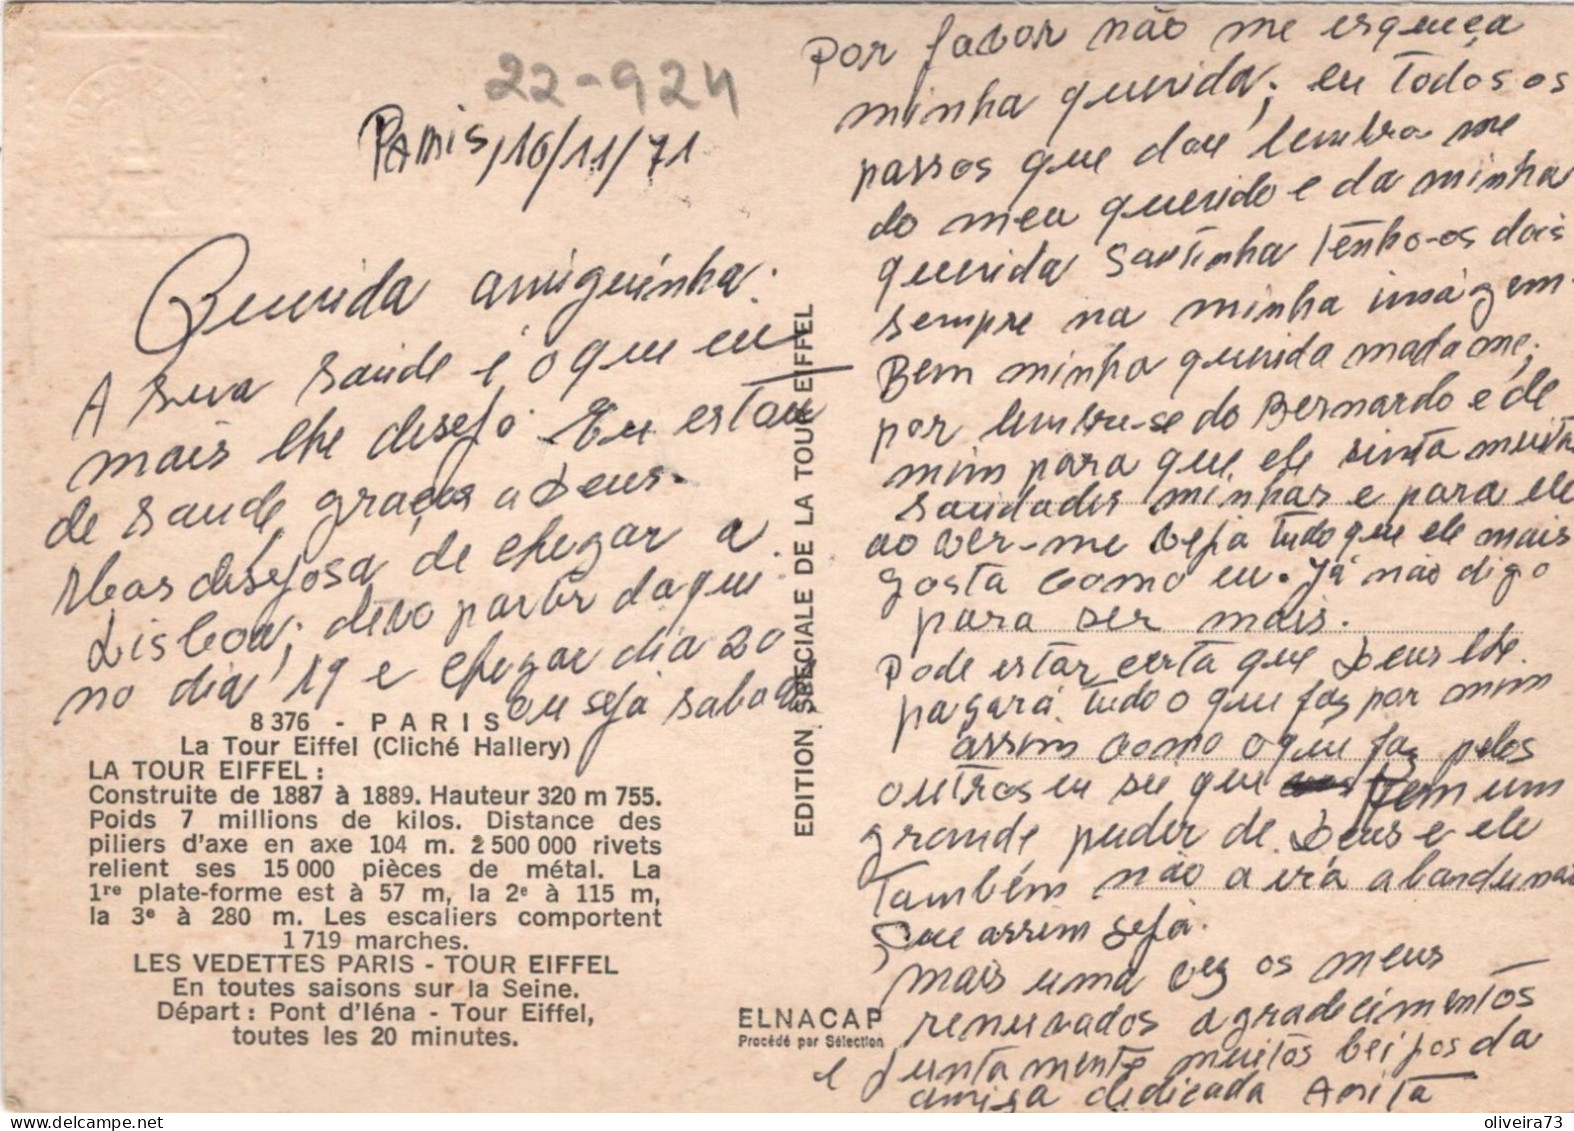 22-924
Paris, 16/11/71
Querida amiguinha.
A sua saúde é o que eu
mais lhe desejo. Eu estou
de saude graças a Deus.
Mas desejosa de chegar a
Lisboa; devo partir daqui
no dia 19 e chegar dia 20
ou seja sabado
8376 - PARIS
La Tour Eiffel (Cliché Hallery)
LA TOUR EIFFEL :
Construite de 1887 à 1889. Hauteur 320 m 755.
Poids 7 millions de kilos. Distance des
piliers d'axe en axe 104 m. 2 500 000 rivets
relient ses 15 000 pièces de métal. La
1re plate-forme est à 57 m, la 2e à 115 m,
la 3e à 280 m. Les escaliers comportent
1 719 marches.
LES VEDETTES PARIS - TOUR EIFFEL
En toutes saisons sur la Seine.
Départ : Pont d'Iéna - Tour Eiffel,
toutes les 20 minutes.
EDITION SPECIALE DE LA TOUR EIFFEL
ELNACAP
Procédé par Sélection
Por favor não me esqueça
minha querida; eu todos os
passos que dou lembra me
do meu querido e da minha
querida Santinha tenho-os dois
sempre na minha imágem.
Bem minha querida madame;
por lembre-se do Bernardo e de
mim para que ele sinta muita
saudades minhas e para ele
ao ver-me veja tudo que ele mais
gosta como eu. Já não digo
para ser mais.
Pode estar certa que Deus lhe
pagará tudo o que faz por mim
assim como o que faz pelos
outros eu sei que tem um
grande puder de Deus e ele
também não a irá abandunar
Que assim seja.
mais uma vez os meus
renuvados agradecimentos
e juntamente muitos beijos da
amiga dedicada Anita
oliveira73